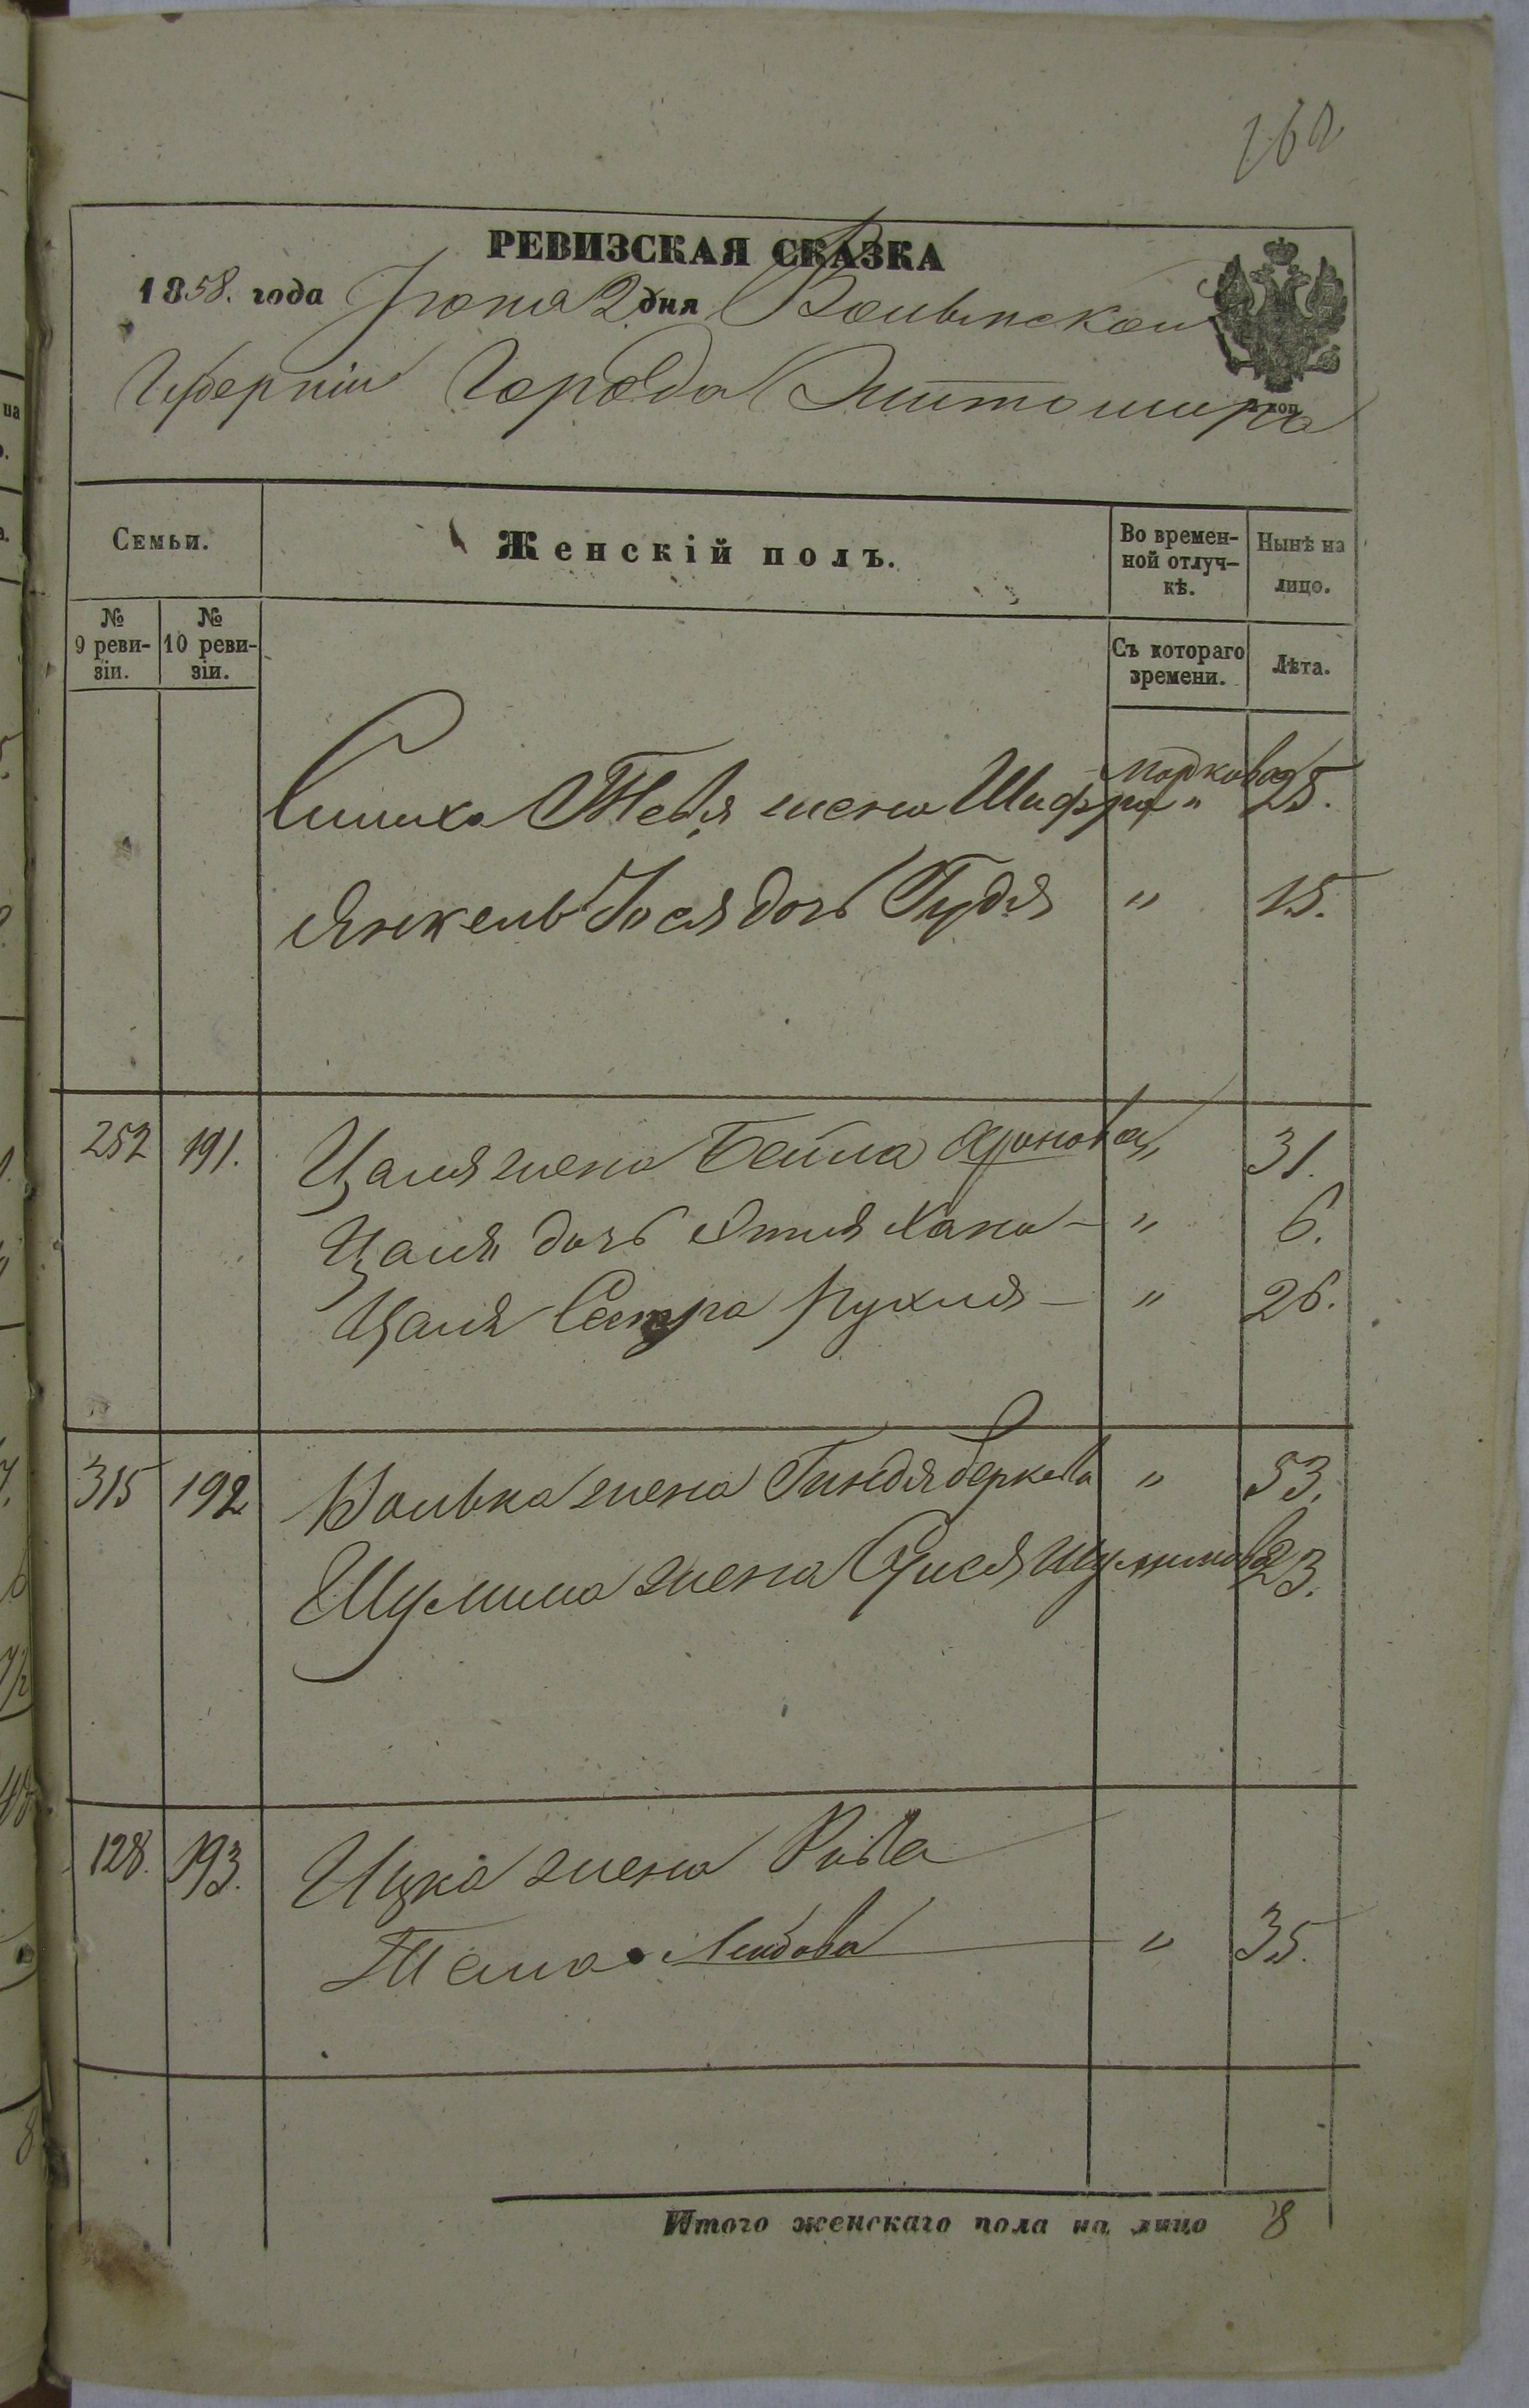 162
РЕВИЗСКАЯ СКАЗКА
1858. года Іюня 2 дня Волынской
Губерніи Города Житомира
Семьи.
Женскій полъ.
Во времен-
ной отлуч-
кѣ.
Нынѣ на
лицо.
№
9 реви-
зіи.
№
10 реви-
зіи.
Съ котораго
времени.
Лѣта.
Симха жена Шифра Моркова " 25.
Янкель Іося дочь Гудя " 15.
252 191. Цаля жена Бейла Аронова " 31.
Цаля дочь Этля Хана — " 6.
Цаля Сестра Рухля — " 26.
315 192 Волька жена Гиндя Беркова " 53.
Шулима жена Шулимова 23.
128. 193. Ицка жена Рива
Лейбова " 35.
Итого женскаго пола на лицо 8